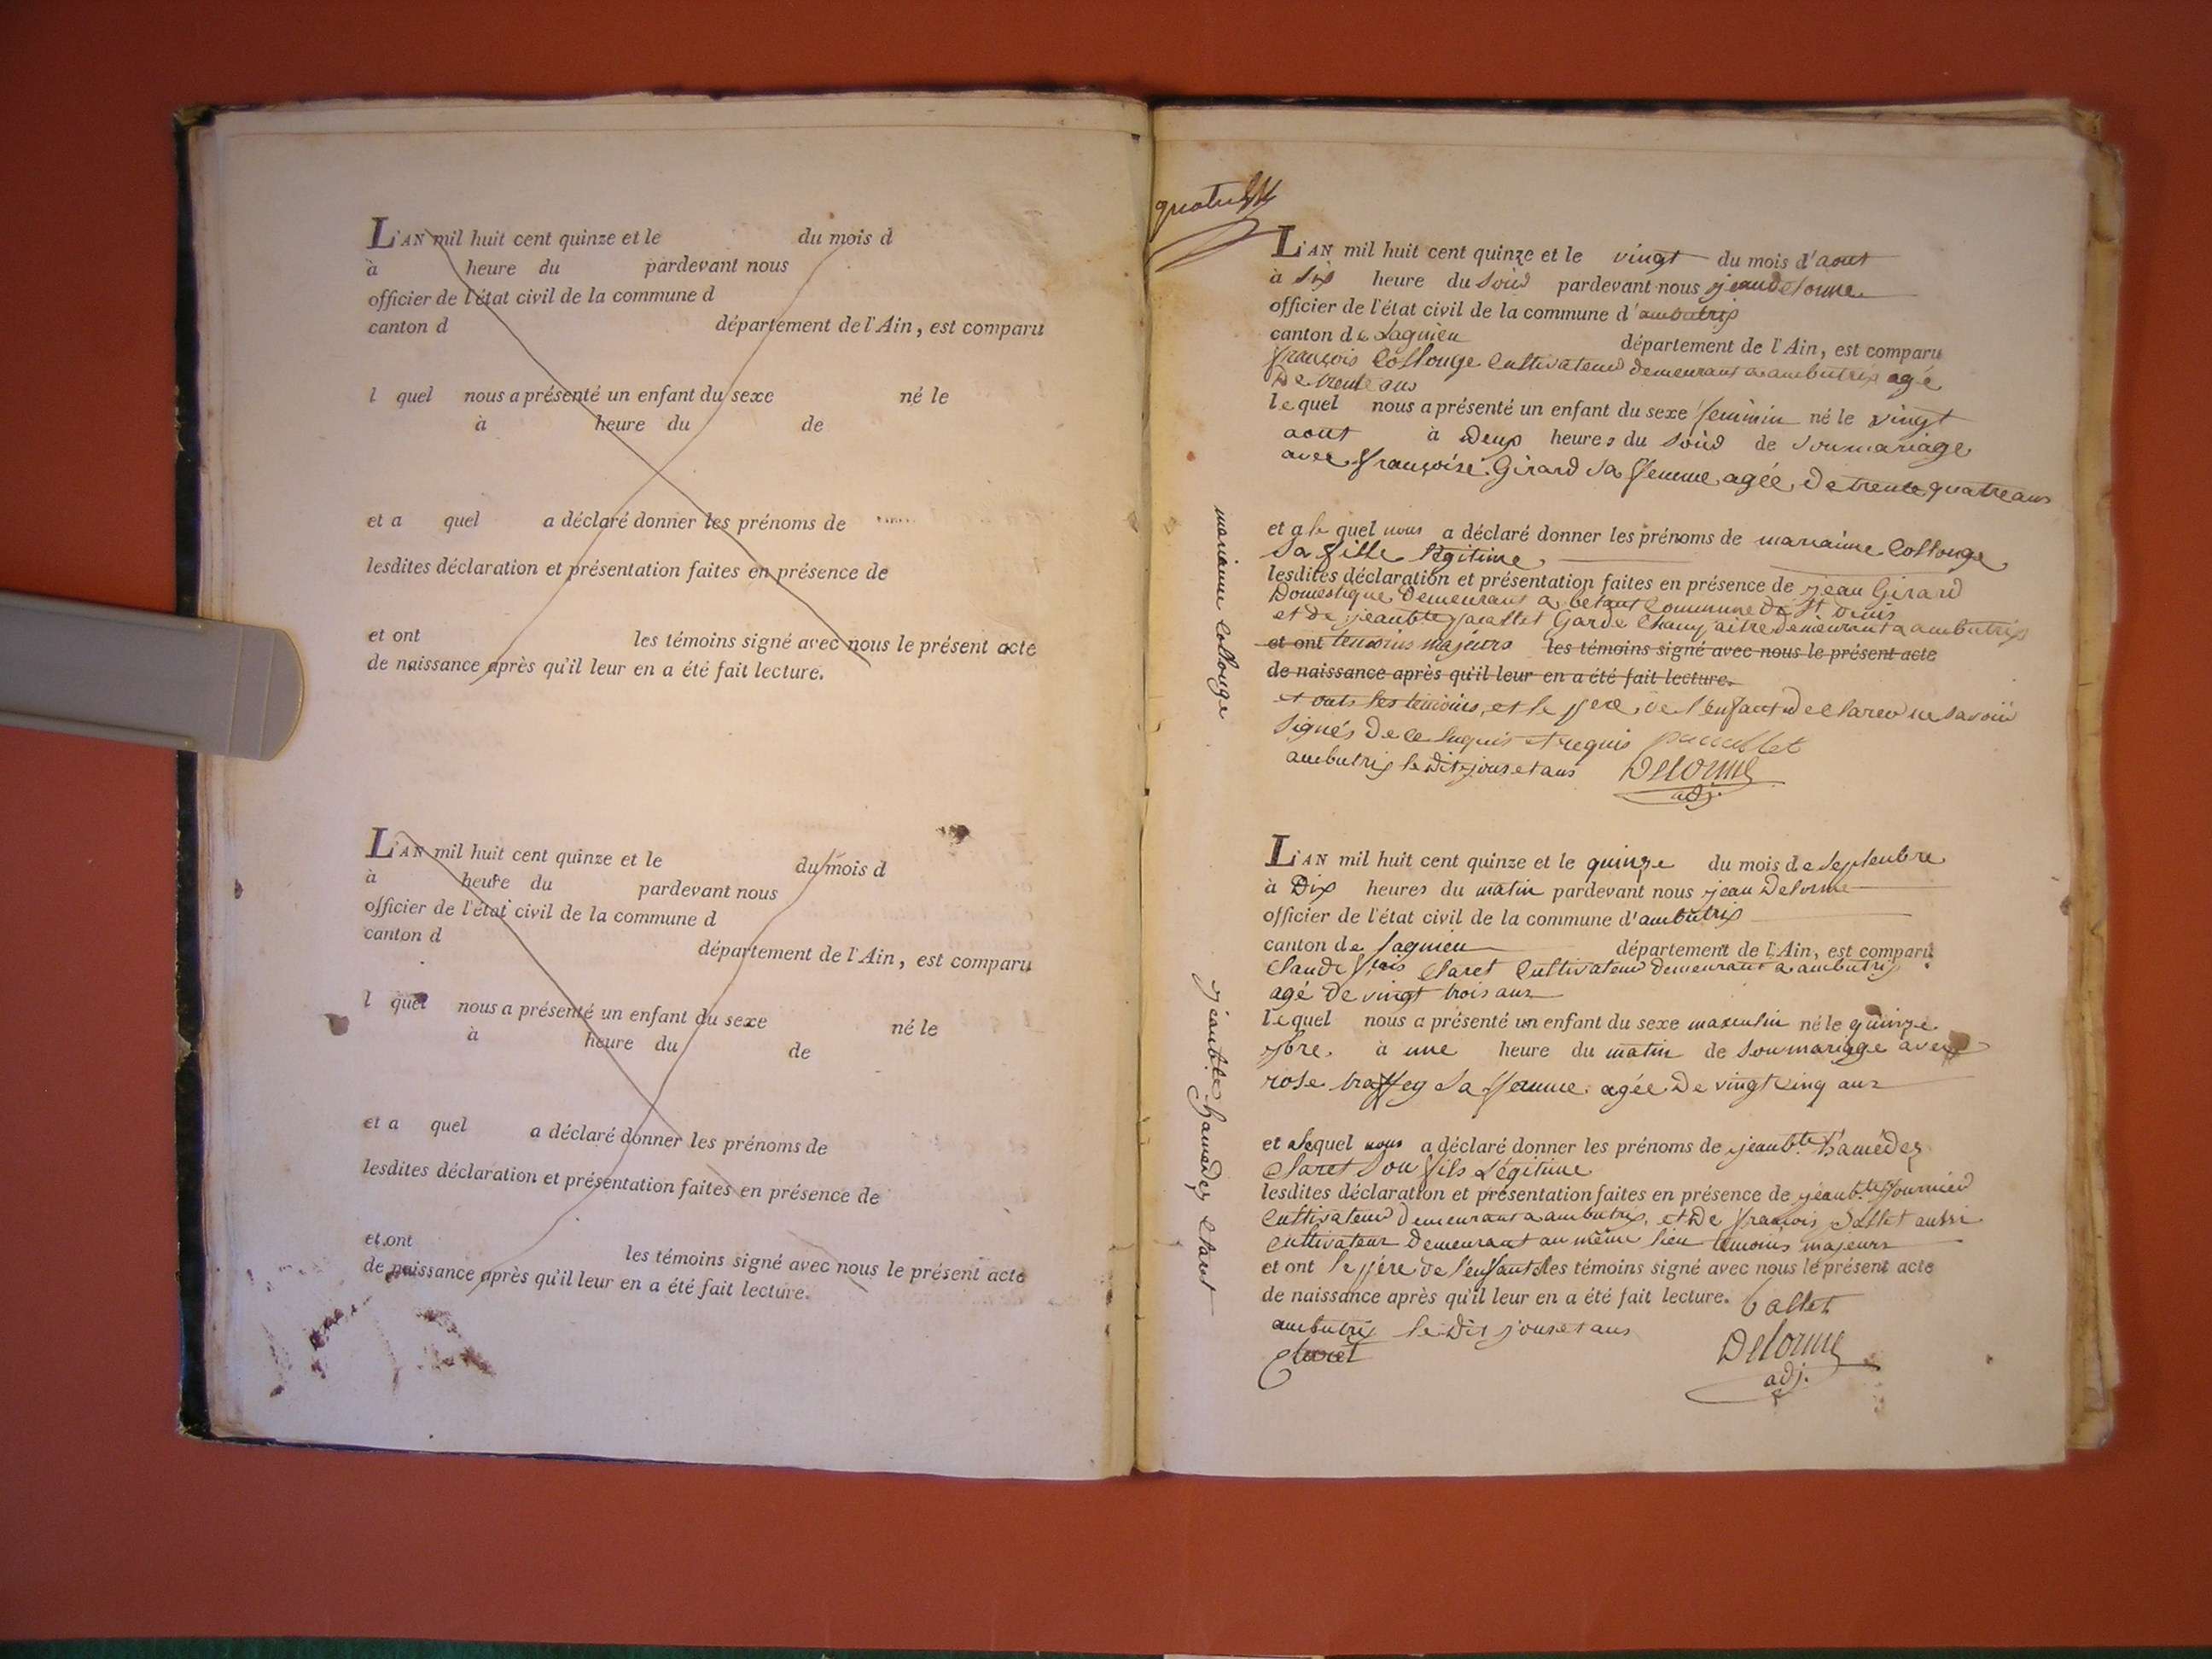 L'AN mil huit cent quinze et le du mois d
à heure du pardevant nous
officier de l'état civil de la commune d
canton d département de l'Ain, est comparu
l quel nous a présenté un enfant du sexe né le
à heure du de
et a quel a déclaré donner les prénoms de
lesdites déclaration et présentation faites en présence de
et ont les témoins signé avec nous le présent acte
de naissance après qu'il leur en a été fait lecture.
L'AN mil huit cent quinze et le du mois d
à heure du pardevant nous
officier de l'état civil de la commune d
canton d département de l'Ain, est comparu
l quel nous a présenté un enfant du sexe né le
à heure du de
et a quel a déclaré donner les prénoms de
lesdites déclaration et présentation faites en présence de
et ont les témoins signé avec nous le présent acte
de naissance après qu'il leur en a été fait lecture.
L'AN mil huit cent quinze et le vingt du mois d'aout
à six heure du soir pardevant nous jean delorme
officier de l'état civil de la commune d'ambutrix
canton de Lagnieu département de l'Ain, est comparu
françois Collouge Cultivateur demeurant a ambutrix agé
De trente ans
lequel nous a présenté un enfant du sexe feminin né le vingt
aout à Deux heures du soir de son mariage
avec françoise Girard sa femme agée De trente quatre ans
et a le quel nous a déclaré donner les prénoms de marianne Collouge
sa fille légitime
lesdites déclaration et présentation faites en présence de jean Girard
Domestique demeurant a betant Commune de St Denis
et de jean bte Garde Champaitre demeurant a ambutrix
et ont temoins majeurs les témoins signé avec nous le présent acte
de naissance après qu'il leur en a été fait lecture.
et onts les temoins, et le pere, de l'enfant declarer ne savoir
signés de ce enquis et requis
ambutrix le Dit jour et ans Delorme
adj.
marianne Collouge
L'AN mil huit cent quinze et le quinze du mois de Septembre
à Dix heures du matin pardevant nous jean Delorme
officier de l'état civil de la commune d'ambutrix
canton de Lagnieu département de l'Ain, est comparu
Claude fçois Claret Cultivateur demeurant a ambutrix
agé de vingt trois ans
lequel nous a présenté un enfant du sexe masculin né le quinze
7bre à une heure du matin de son mariage avec
rose sa femme agée De vingt cinq ans
et alequel nous a déclaré donner les prénoms de jean bte hamédez
Claret son fils Légitime
lesdites déclaration et présentation faites en présence de jean bte fournier
Cultivateur demeurant a ambutrix, et De françois Ballet aussi
Cultivateur demeurant au même lieu temoins majeurs
et ont le père de l'enfant les témoins signé avec nous le présent acte
de naissance après qu'il leur en a été fait lecture. ballet
ambutrix le Dit jour et ans
Claret Delorme
adj.
jean bte hamedez Claret